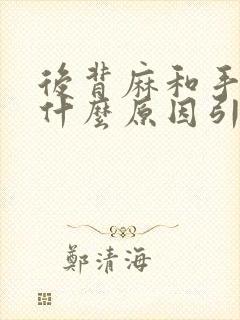 後背麻和手
什麼原因引
鄭清海